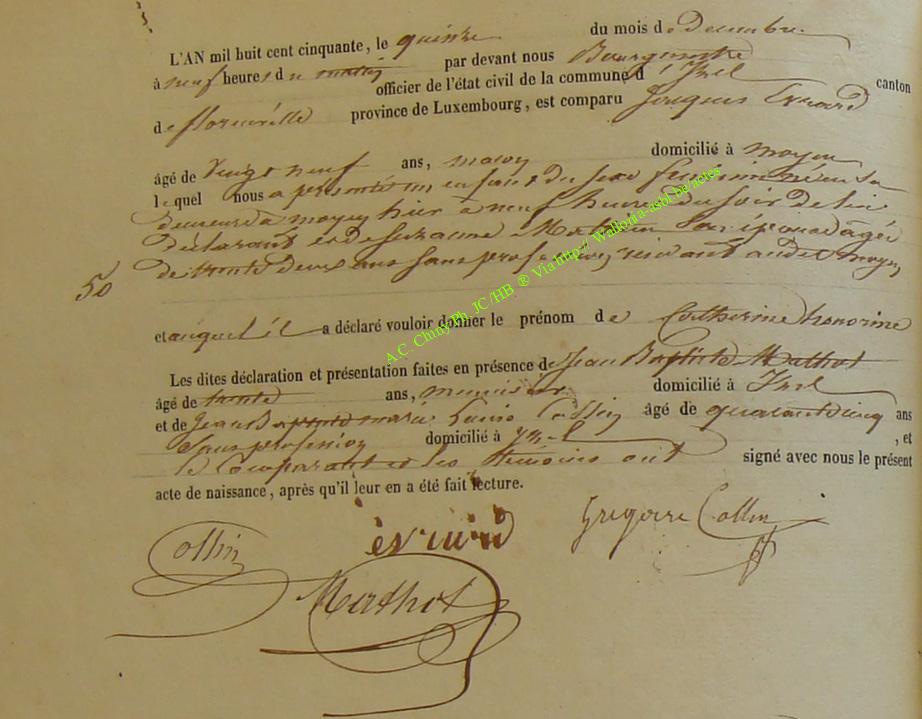 L'AN mil huit cent cinquante, le quinze du mois de Decembre
à neuf heures du matin par devant nous Bourgmestre
officier de l'état civil de la commune d'Izel canton
de florenville province de Luxembourg, est comparu Jacques Evrard
âgé de vingt neuf ans, maçon domicilié à moyen
lequel nous a présenté un enfant du sexe feminin né en sa
demeure à moyen hier à neuf heures du soir de lui
déclarant et de Suzanne son épouse agée
de trente deux ans sans profession, residant audit moyen
50
et auquel il a déclaré vouloir donner le prénom de Catherine honorine
Les dites déclaration et présentation faites en présence de Jean Baptiste Mathot
âgé de trente ans, menuisier domicilié à Izel
et de Jean Baptiste marie Louis Collin âgé de quarantecinq ans
sans profession domicilié à Izel , et
le Comparant et les temoins ont signé avec nous le présent
acte de naissance, après qu'il leur en a été fait lecture.
Collin évrard Grégoire Collin
Mathot
A.C. Chiny Ph. JC/HB ® Via http:// Wallonia-asbl.be/actes